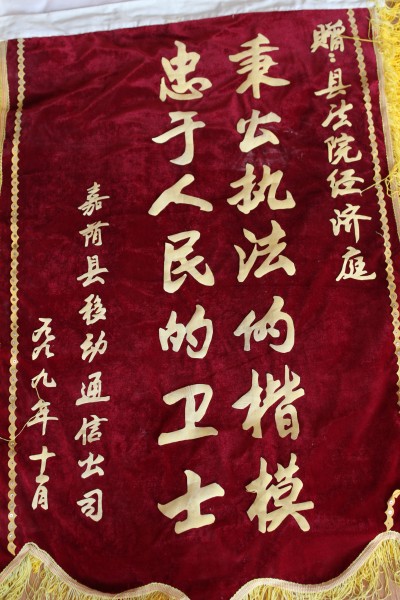 赠：县法院经济庭
秉公执法的楷模
忠于人民的卫士
嘉荫县移动通信公司
一九九九年十一月